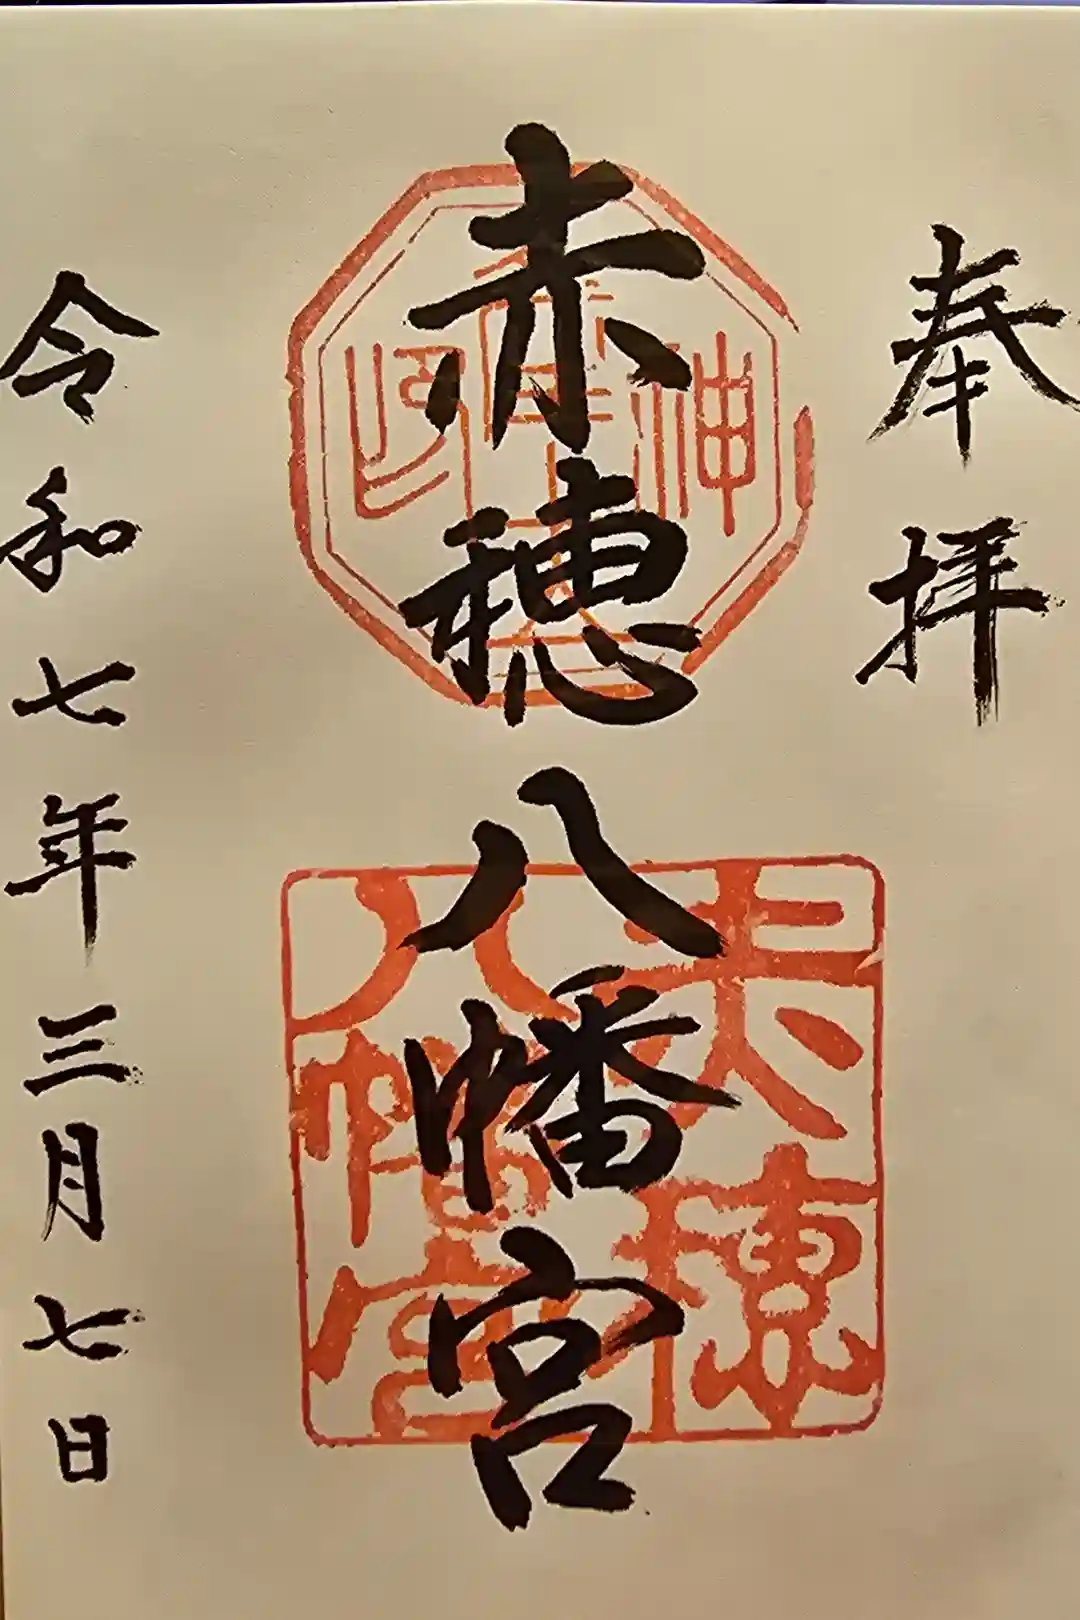 奉拝
赤穂八幡宮
赤穂
八幡宮
令和七年三月七日